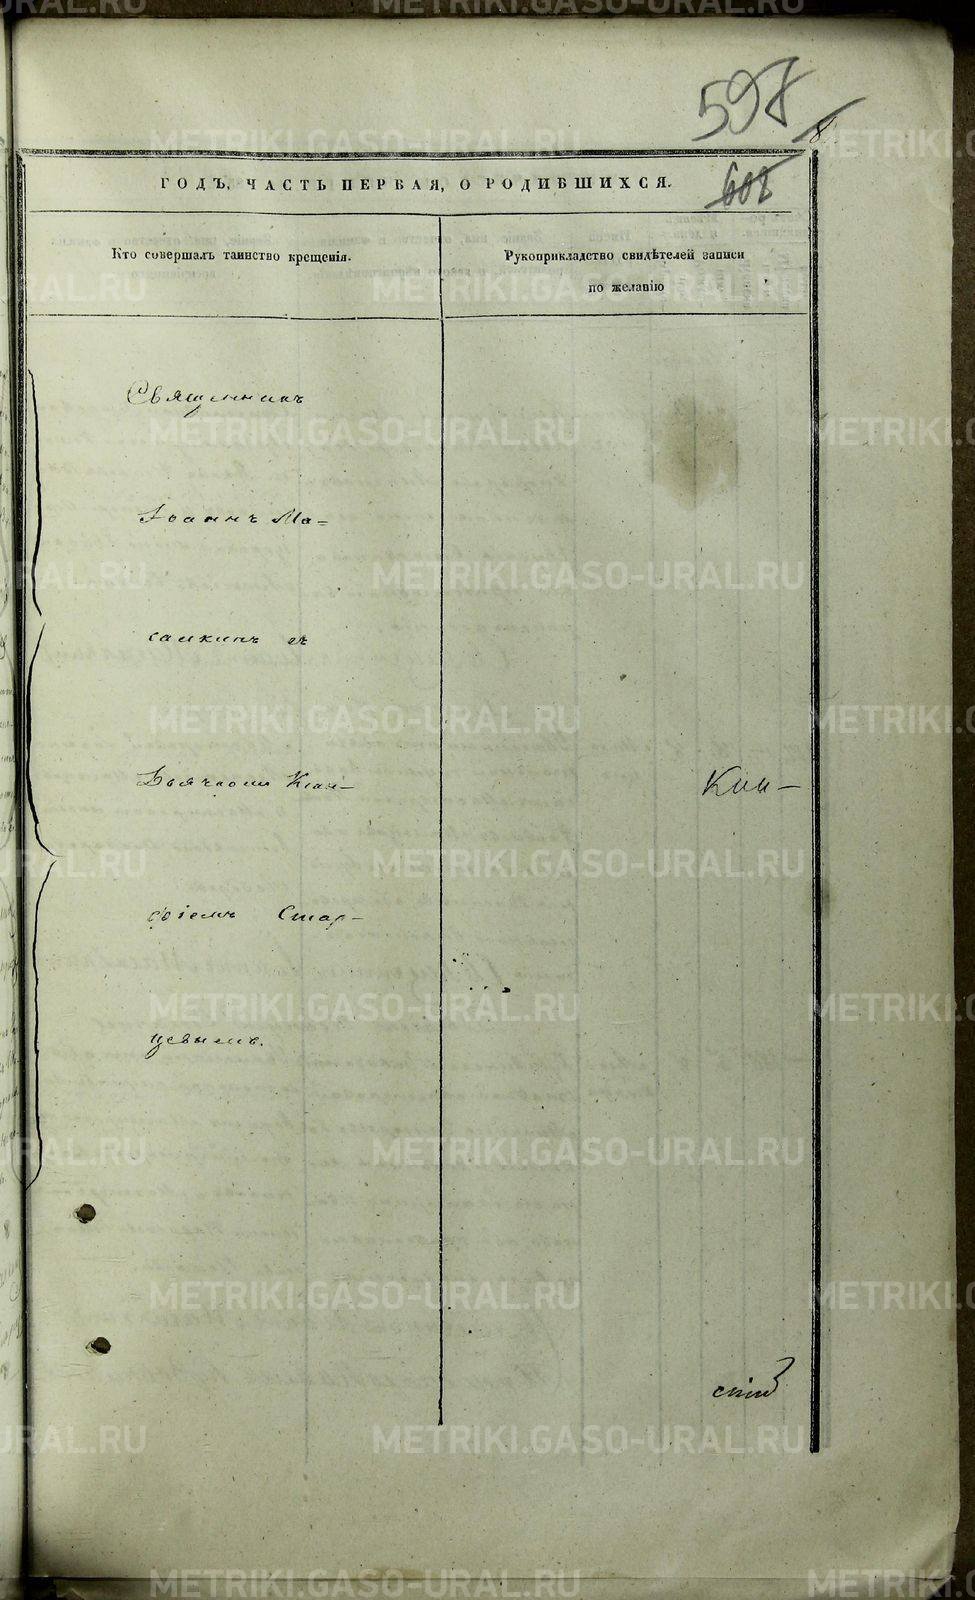 598
8
602
ГОДЪ, ЧАСТЬ ПЕРВАЯ, О РОДИВШИХСЯ.
Кто совершалъ таинство крещенія.
Рукоприкладство свидѣтелей записи
по желанію
Священникъ
Іоаннъ Ма-
самкинъ съ
Дьячкомъ Клав-
діемъ Стар-
цевымъ.
METRIKI.GASO-URAL.RU